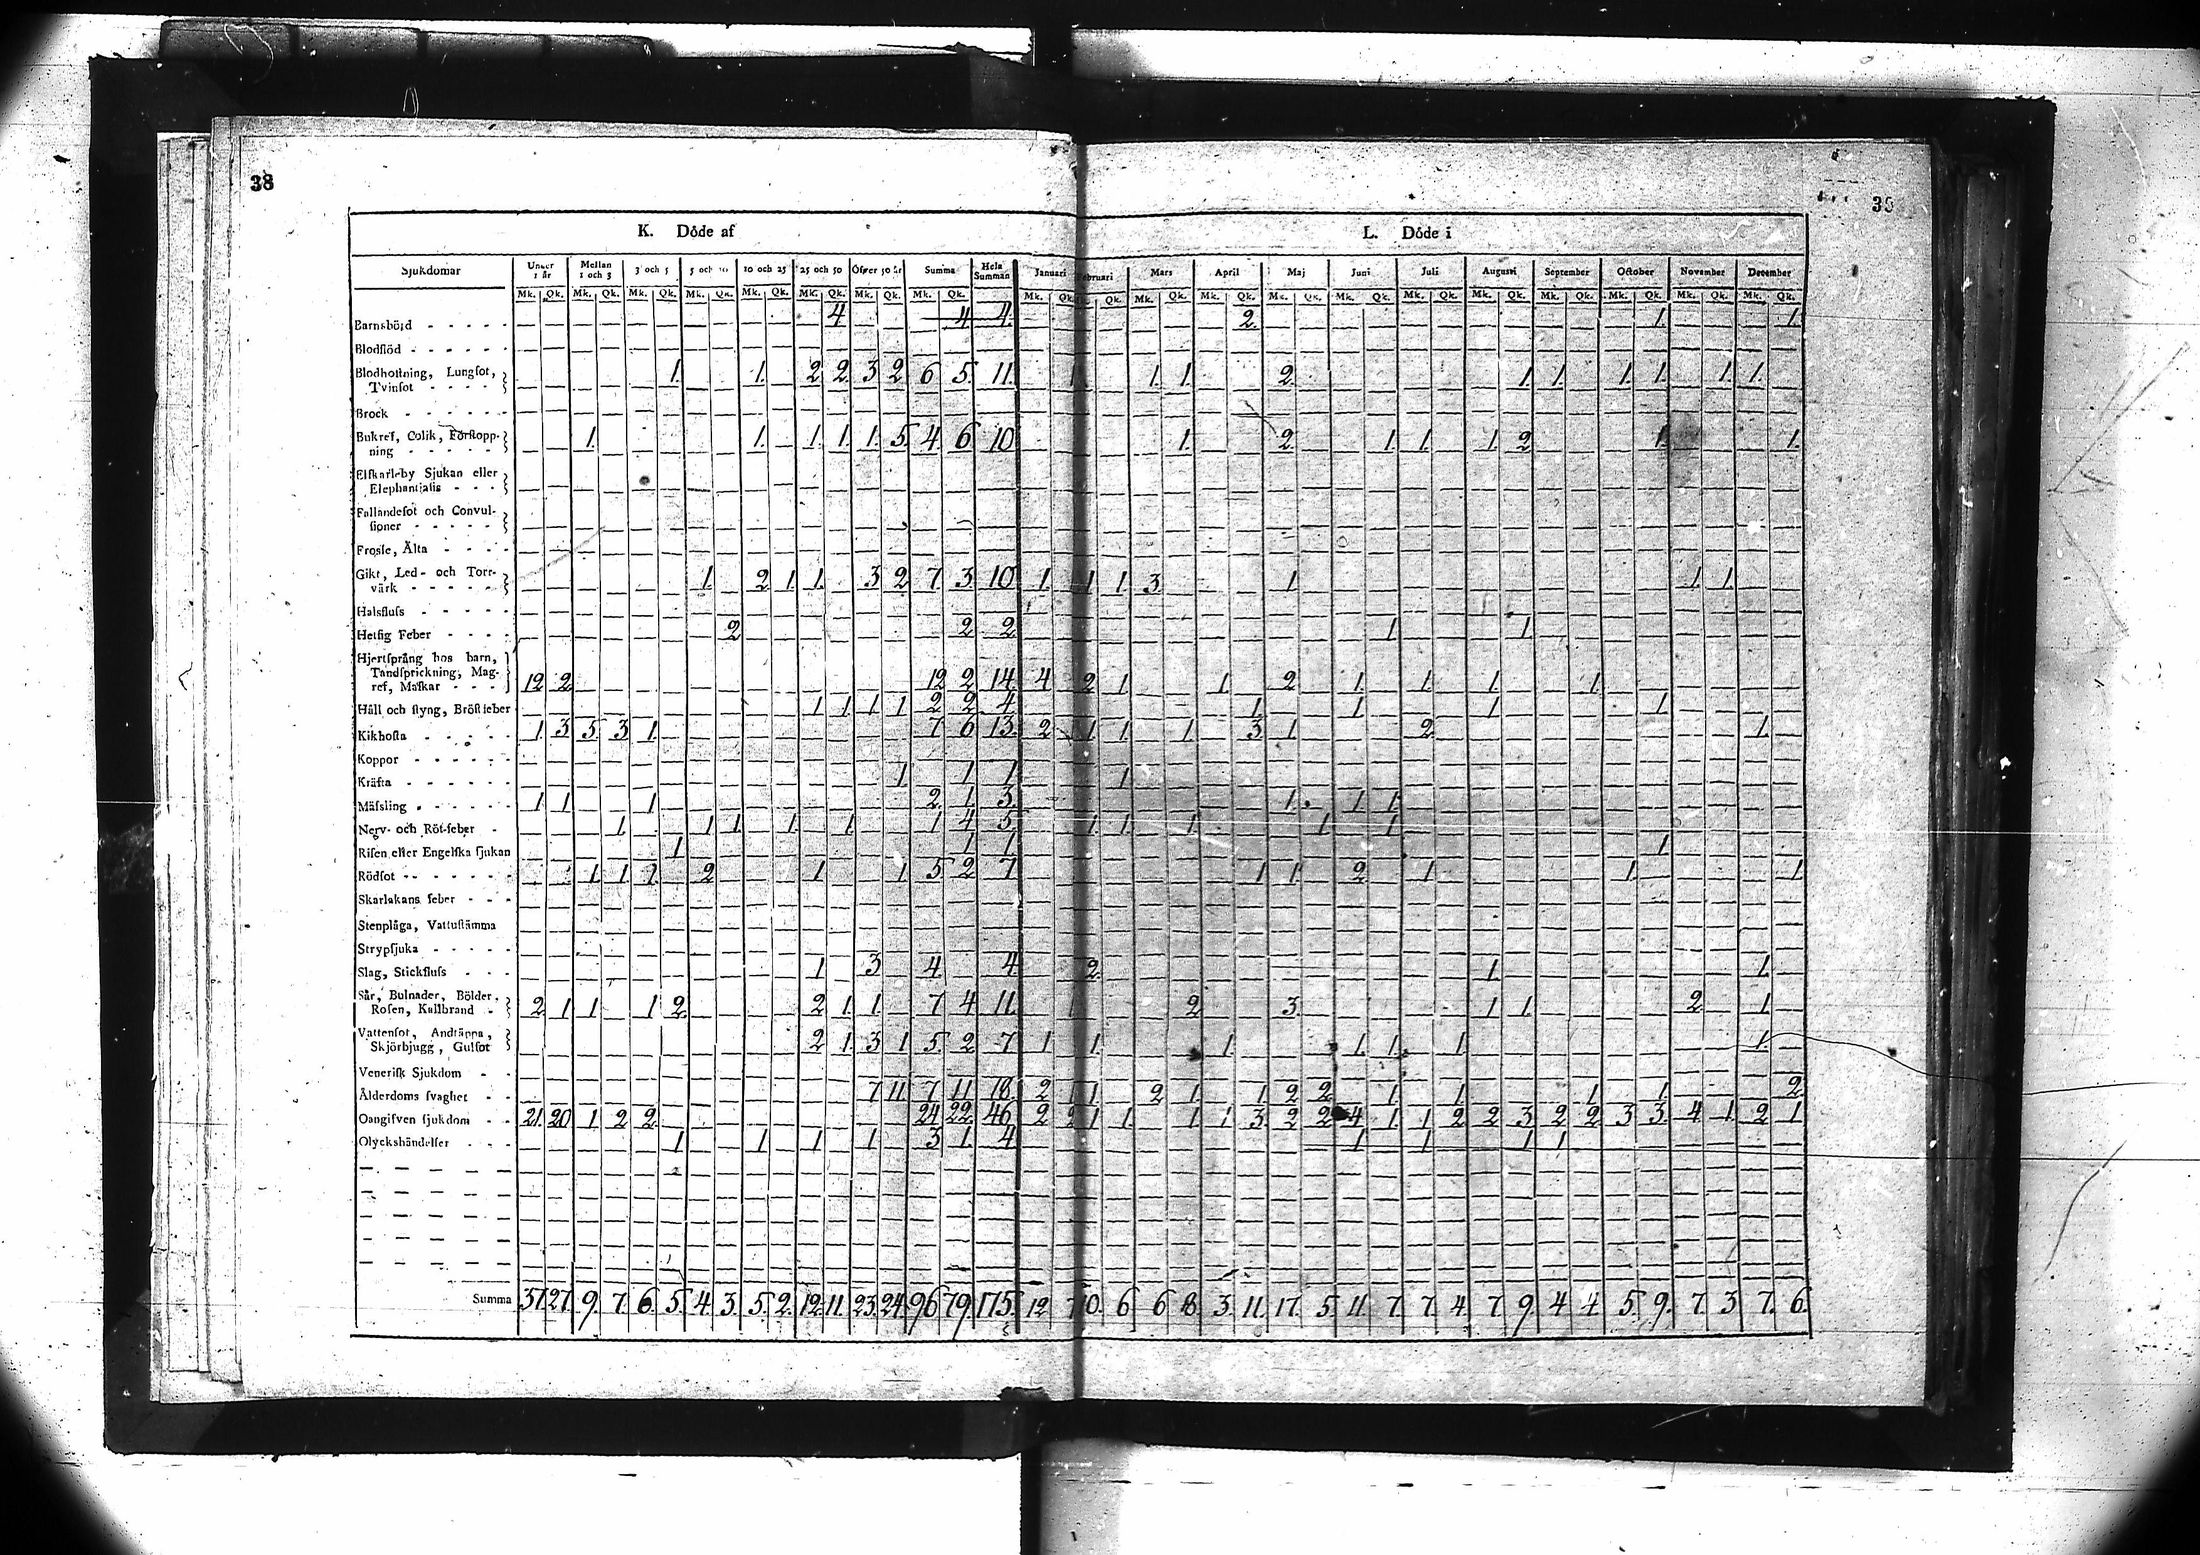 38
39
K. Döde af
L. Döde i
Sjukdomar Under 1 år Mellan 1 och 3 3 och 5 5 och 10 10 och 25 25 och 50 Öfver 50 år Summa Hela Summan Januari Februari Mars April Maj Juni Juli Augusti September October November December
Mk. Qk. Mk. Qk. Mk. Qk. Mk. Qk. Mk. Qk. Mk. Qk. Mk. Qk. Mk. Qk. Mk. Qk. Qk. Mk. Qk. Mk. Qk. Mk. Qk. Mk. Qk. Mk. Qk. Mk. Qk. Mk. Qk. Mk. Qk. Mk. Qk. Mk. Qk.
Barnsbörd 4 4 4. 2. 1. 1.
Blodflöd
Blodhostning, Lungsot,
Tvinsot 1. 1. 2 2. 3 2 6 5. 11. 1 1. 1. 2. 1. 1. 1. 1. 1. 1.
Brock
Bukref, Colik, Förstopp-
ning 1. 1. 1. 1. 1. 5 4 6 10 1. 2. 1. 1. 1. 2 1. 1.
Elskarleby Sjukan eller
Elephantiasis
Fallandesot och Convul-
sioner
Frossa, Älta
Gikt, Led- och Torr-
värk 1. 2 1. 1. 3 2 7 3 10 1. 1 1. 3 1 1 1.
Halsfluss
Hetsig Feber 2 2 2 1 1
Hjertsprång hos barn,
Tandsprickning, Mag-
ref, Maskar 12 2 12 2 14 4 2 1 1. 2 1. 1. 1. 1
Håll och styng, Bröstfeber 1 1 1 1 2 2 4 1 1 1 1
Kikhosta 1 3 5 3 1 7 6 13. 2 1 1 1 3 1 2 1
Koppor
Kräfta 1. 1 1 1
Mässling 1 1 1 2. 1. 3. 1. 1 1.
Nerv- och Röt-feber 1. 1 1. 1. 1. 1 4 5 1 1. 1 1 1
Risen eller Engelska sjukan 1 1 1 1
Rödsot 1 1 1 2 1 1 5 2 7 1 1 2 1 1 1
Skarlakans feber
Stenplåga, Vattustämma
Strypsjuka
Slag, Stickfluss 1 3 4 4 2 1 1.
Sår, Bulnader, Bölder,
Rosen, Kallbrand 2 1 1 1 2 2 1. 1. 7 4 11. 1 2 3 1 1 2 1
Vattensot, Andtäppa,
Skjörbjugg, Gulsot 2 1. 3 1 5. 2 7 1 1. 1. 1 1. 1 1
Venerisk Sjukdom
Ålderdoms svaghet 7 11 7 11 18. 2 1 1 2 1 1 2 2 1 1 1 1 2
Oangifven sjukdom 21. 20 1 2 2 24 22 46 2 2 1 1 1 1 3 2 2 4 1. 1 2 2 3 2 2 3 3. 4 1. 2 1
Olyckshändelser 1 1 1 1 3 1. 4 1 1 1 1
Summa 37 27. 9. 7. 6. 5. 4. 3. 5. 2. 12. 11. 23. 24. 96 79. 175. 12 7 10. 6 6 8. 3. 11. 17. 5 11 7. 7 4. 7 9. 4 4 5. 9. 7. 3 7. 6.